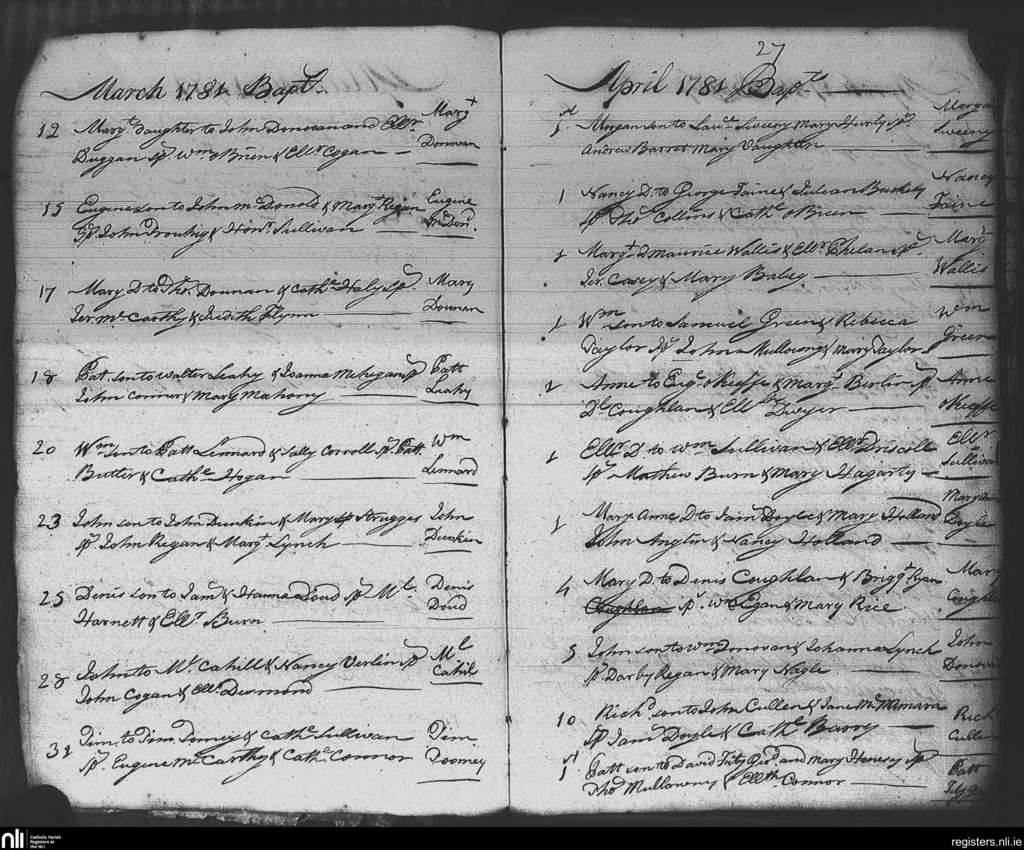 March 1781 Bapt.
12 Margt Daughter to John Donovan and Ellr. Margt
Duggan sp Wm O Brien & Ellr Cogan Donovan
15 Eugene son to John McDonold & Margt Regan Eugene
sp. John & Honr. Sullivan McDon.
17 Mary D to Thos. Dounan & Cathe Haly sp. Mary
Jer. McCarthy & Judith Flynn Dounan
18 Pat. son to Walter Leahy & Joanna Mehegan sp Patt
John Connor & Mary Mahony Leahy
20 Wm son to Patt Lennard & Sally Corroll sp. Patt. Wm
Butler & Cathe Hogan Lennard
23 John son to John Dunkin & Mary sp Strugges John
sp. John Regan & Margt Lynch Dunkin
25 Denis son to Jams & Hanna Doud sp Ml. Denis
Harnett & Ellr Burn Doud
28 John to Ml. Cahill & Nancy Verlin sp Ml
John Cogan & Ellr Desmond Cahil
31 Tim. to Tim. Tomey & Cathe Sullivan Tim.
sp. Eugene McCarthy & Cathe Connor Toomey
27
April 1781 Bapt
1st. Morgan son to Lawe Sweeny Mary Hurly sp Morgan
Andrew Barret Mary Vaughlin Sweeny
1 Nancy D to George Faine & Julian Buckely Nancy
sp Thos Collins & Cathe O Brien Faine
1 Margt D Maurice Wallis & Ellr Phelan sp. Marg
Jer. Casey & Mary Baley Wallis
1 Wm son to Samuel Green & Rebecca Wm
Taylor sp John Mullowny & Mary Taylor Green
1 Anne to Eug. OKeeffe & Margt Berlin sp. Anne
Dl Coughlan & Ellr Dwyer OKeeffe
1 Ellr. D to Wm Sullivan & Ellr Driscoll Ellr
sp Mathew Burn & Mary Hagarty Sullivan
1 Mary Anne D to Jams Doyle & Mary Holland Mary Ann
John Anglin & Nancy Holland Doyle
4 Mary D. to Denis Coughlan & Briggt Ryan Mary
Coughlan sp. Wm Egan & Mary Rice Coughla
5 John son to Wm Donovan & Johanna Lynch John
sp Darby Regan & Mary Nagle Donova
10 Richd son to John Cullen & Jane McMmara Rich
sp Jams Doyle & Cathe Barry Cullen
1st Patt son to David Fitz Gerd and Mary Henesey sp Patt
Thos Mullowney & Ellth Connor
nli Catholic Parish
Registers at
the NLI
registers.nli.ie